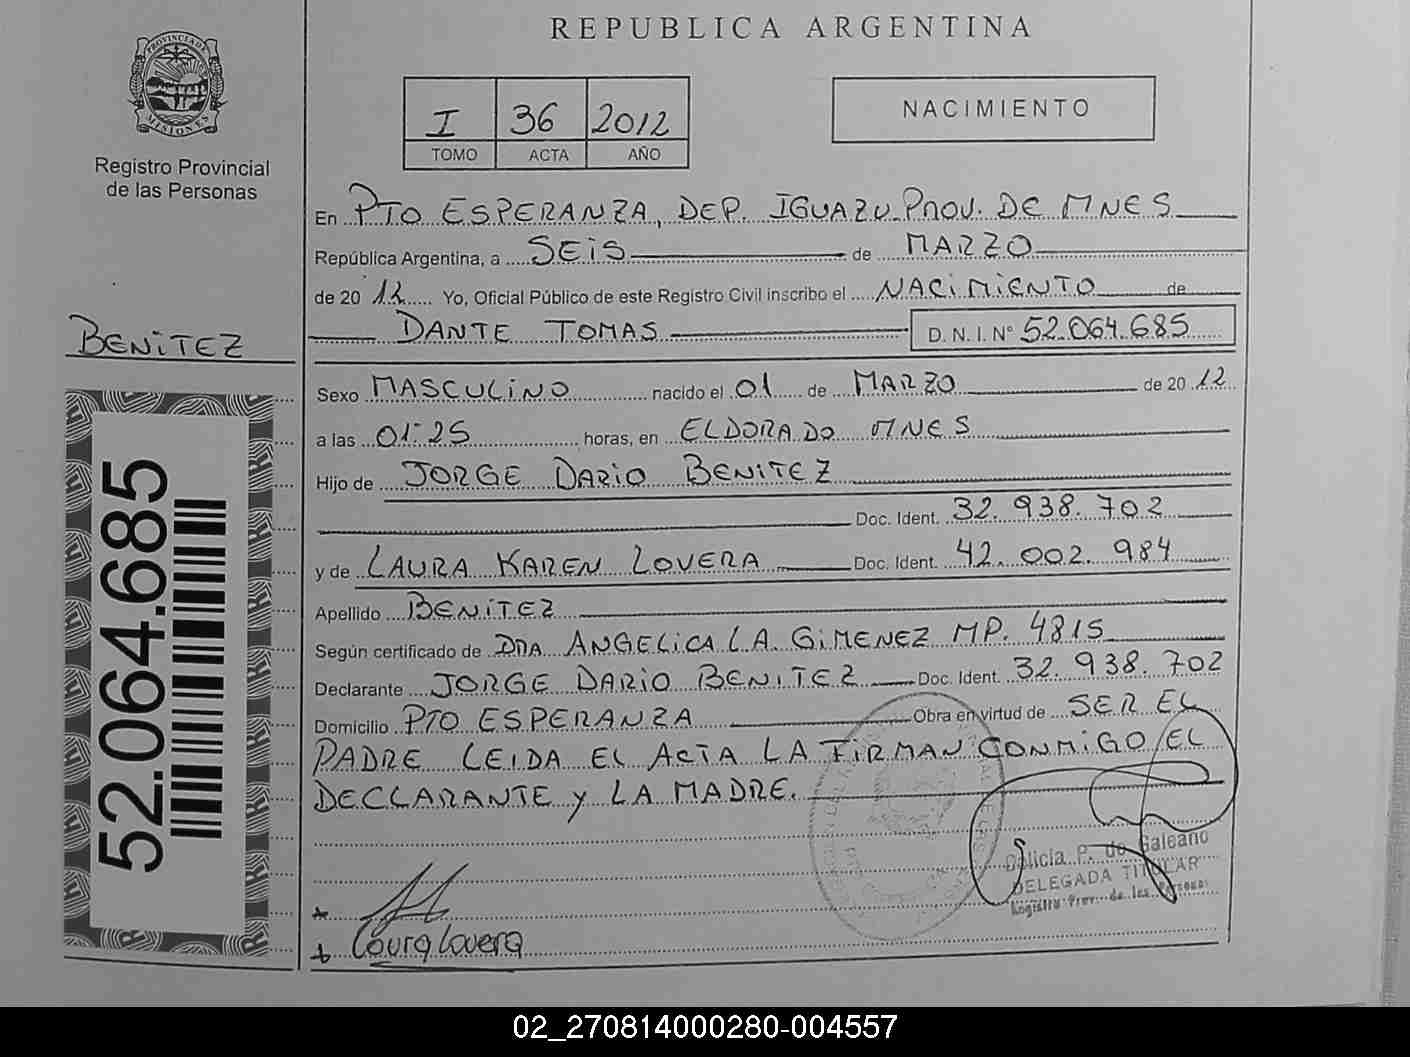 REPUBLICA ARGENTINA
PROVINCIA DE
MISIONES
Registro Provincial
de las Personas
I 36 2012
TOMO ACTA AÑO
NACIMIENTO
En PTO ESPERANZA, DEP. IGUAZU PROV. DE MNES
República Argentina, a SEIS de MARZO
de 20 12 Yo, Oficial Público de este Registro Civil inscribo el NACIMIENTO de
DANTE TOMAS D. N. I. N° 52.064.685
BENITEZ
Sexo MASCULINO nacido el 01 de MARZO de 20 12
a las 01:25 horas, en ELDORADO MNES
Hijo de JORGE DARIO BENITEZ
Doc. Ident. 32.938.702
y de LAURA KAREN LOVERA Doc. Ident. 42.002.984
Apellido BENITEZ
Según certificado de DRA ANGELICA L.A. GIMENEZ MP. 4815
Declarante JORGE DARIO BENITEZ Doc. Ident. 32.938.702
Domicilio PTO ESPERANZA Obra en virtud de SER EL
PADRE LEIDA EL ACTA LA FIRMAN CONMIGO EL
DECLARANTE y LA MADRE.
52.064.685
Galicia P. de Galeano
DELEGADA TITULAR
Registro Prov. de las Personas
Laura Lovera
02_270814000280-004557